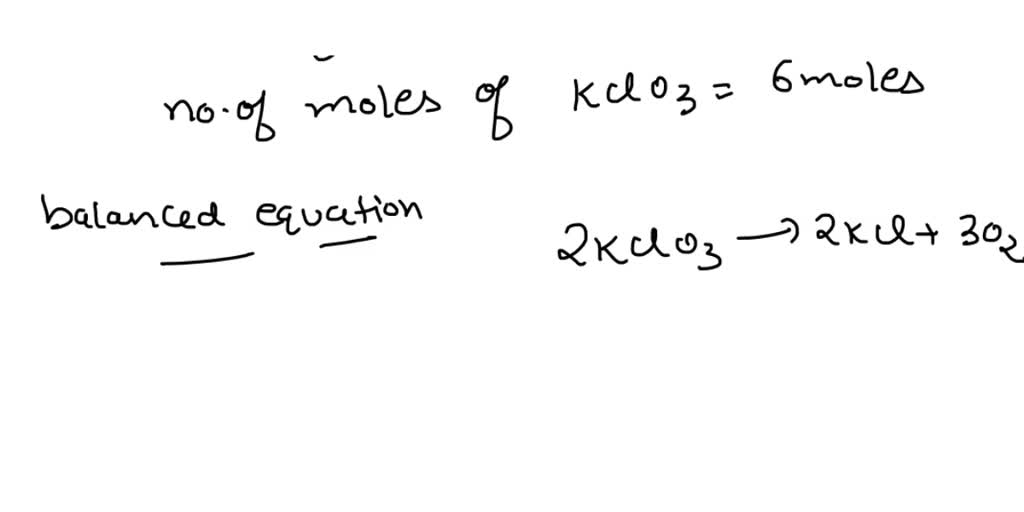 no. of moles of KClO3 = 6 moles
balanced equation 2KClO3 → 2KCl + 3O2